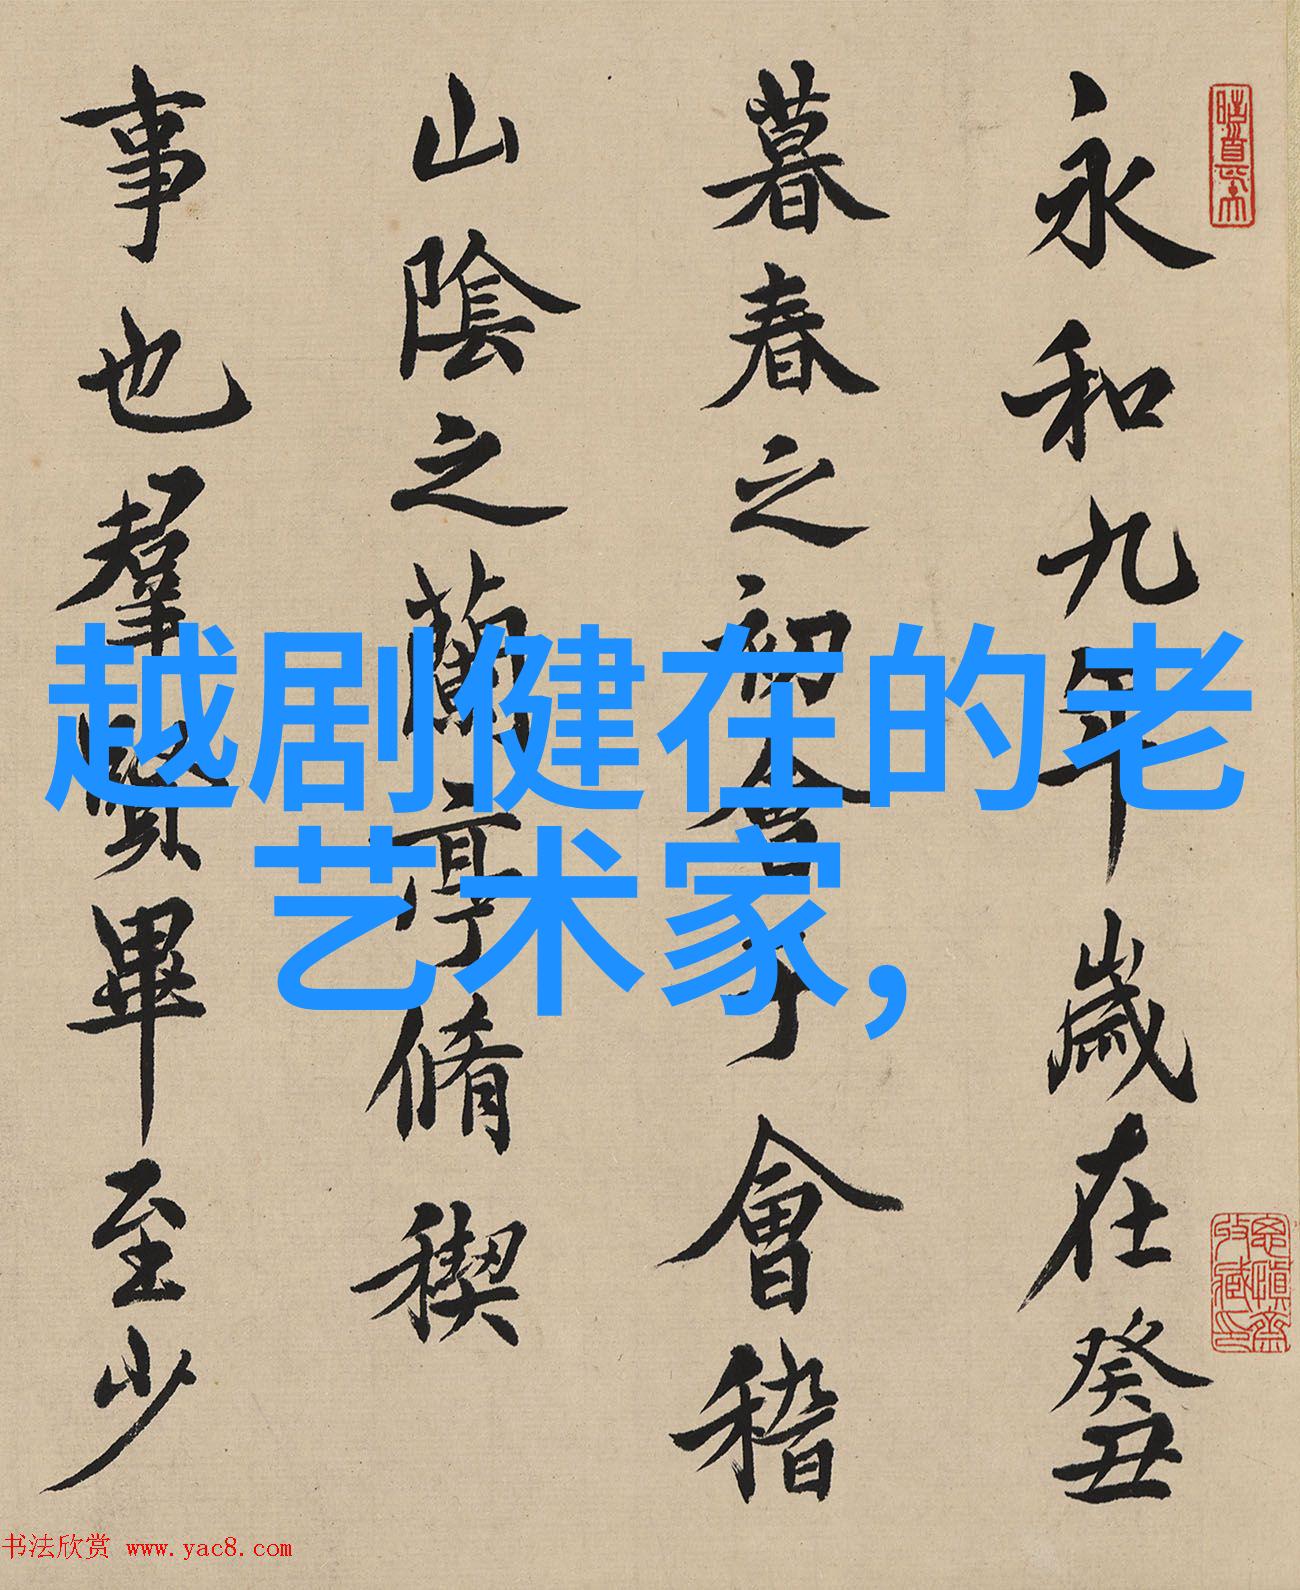 永和九年歲在癸丑
暮春之初會于會稽
山陰之蘭亭脩稧
事也羣賢畢至少
越剧健在的老
艺术家，
书法欣赏 www.yac8.com